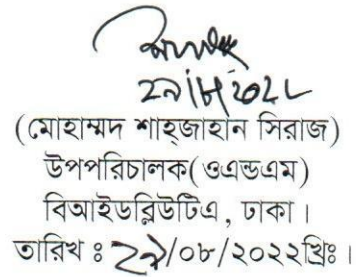 (মোহাম্মদ শাহ্জাহান সিরাজ)
উপপরিচালক(ওএন্ডএম)
বিআইডব্লিউটিএ, ঢাকা।
তারিখ ঃ ২৯/০৮/২০২২খ্রিঃ।